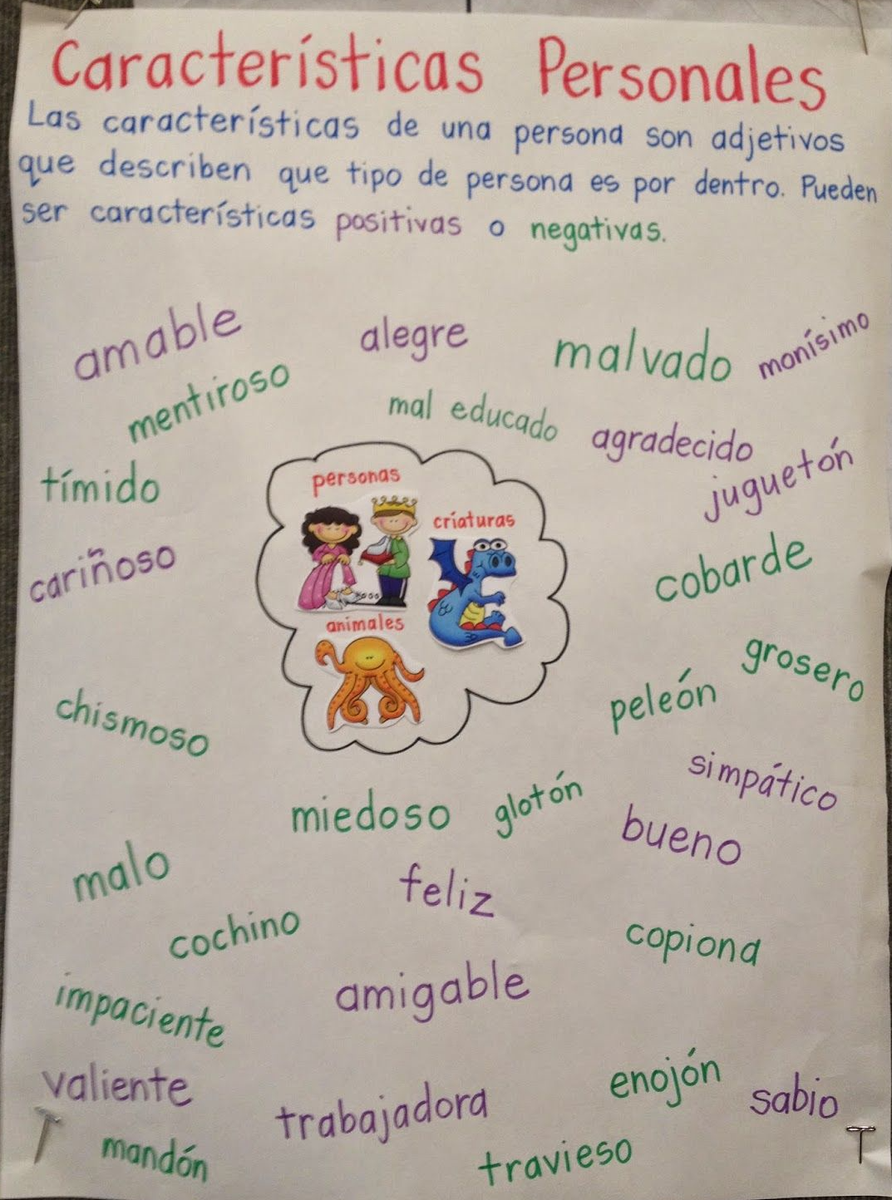 Características Personales
Las características de una persona son adjetivos
que describen que tipo de persona es por dentro. Pueden
ser características positivas o negativas.
amable
alegre
malvado
monísimo
mentiroso
mal educado
agradecido
juguetón
tímido
personas
criaturas
cariñoso
cobarde
animales
grosero
peleón
chismoso
simpático
miedoso
glotón
bueno
malo
feliz
cochino
copiona
impaciente
amigable
valiente
trabajadora
enojón
sabio
mandón
travieso